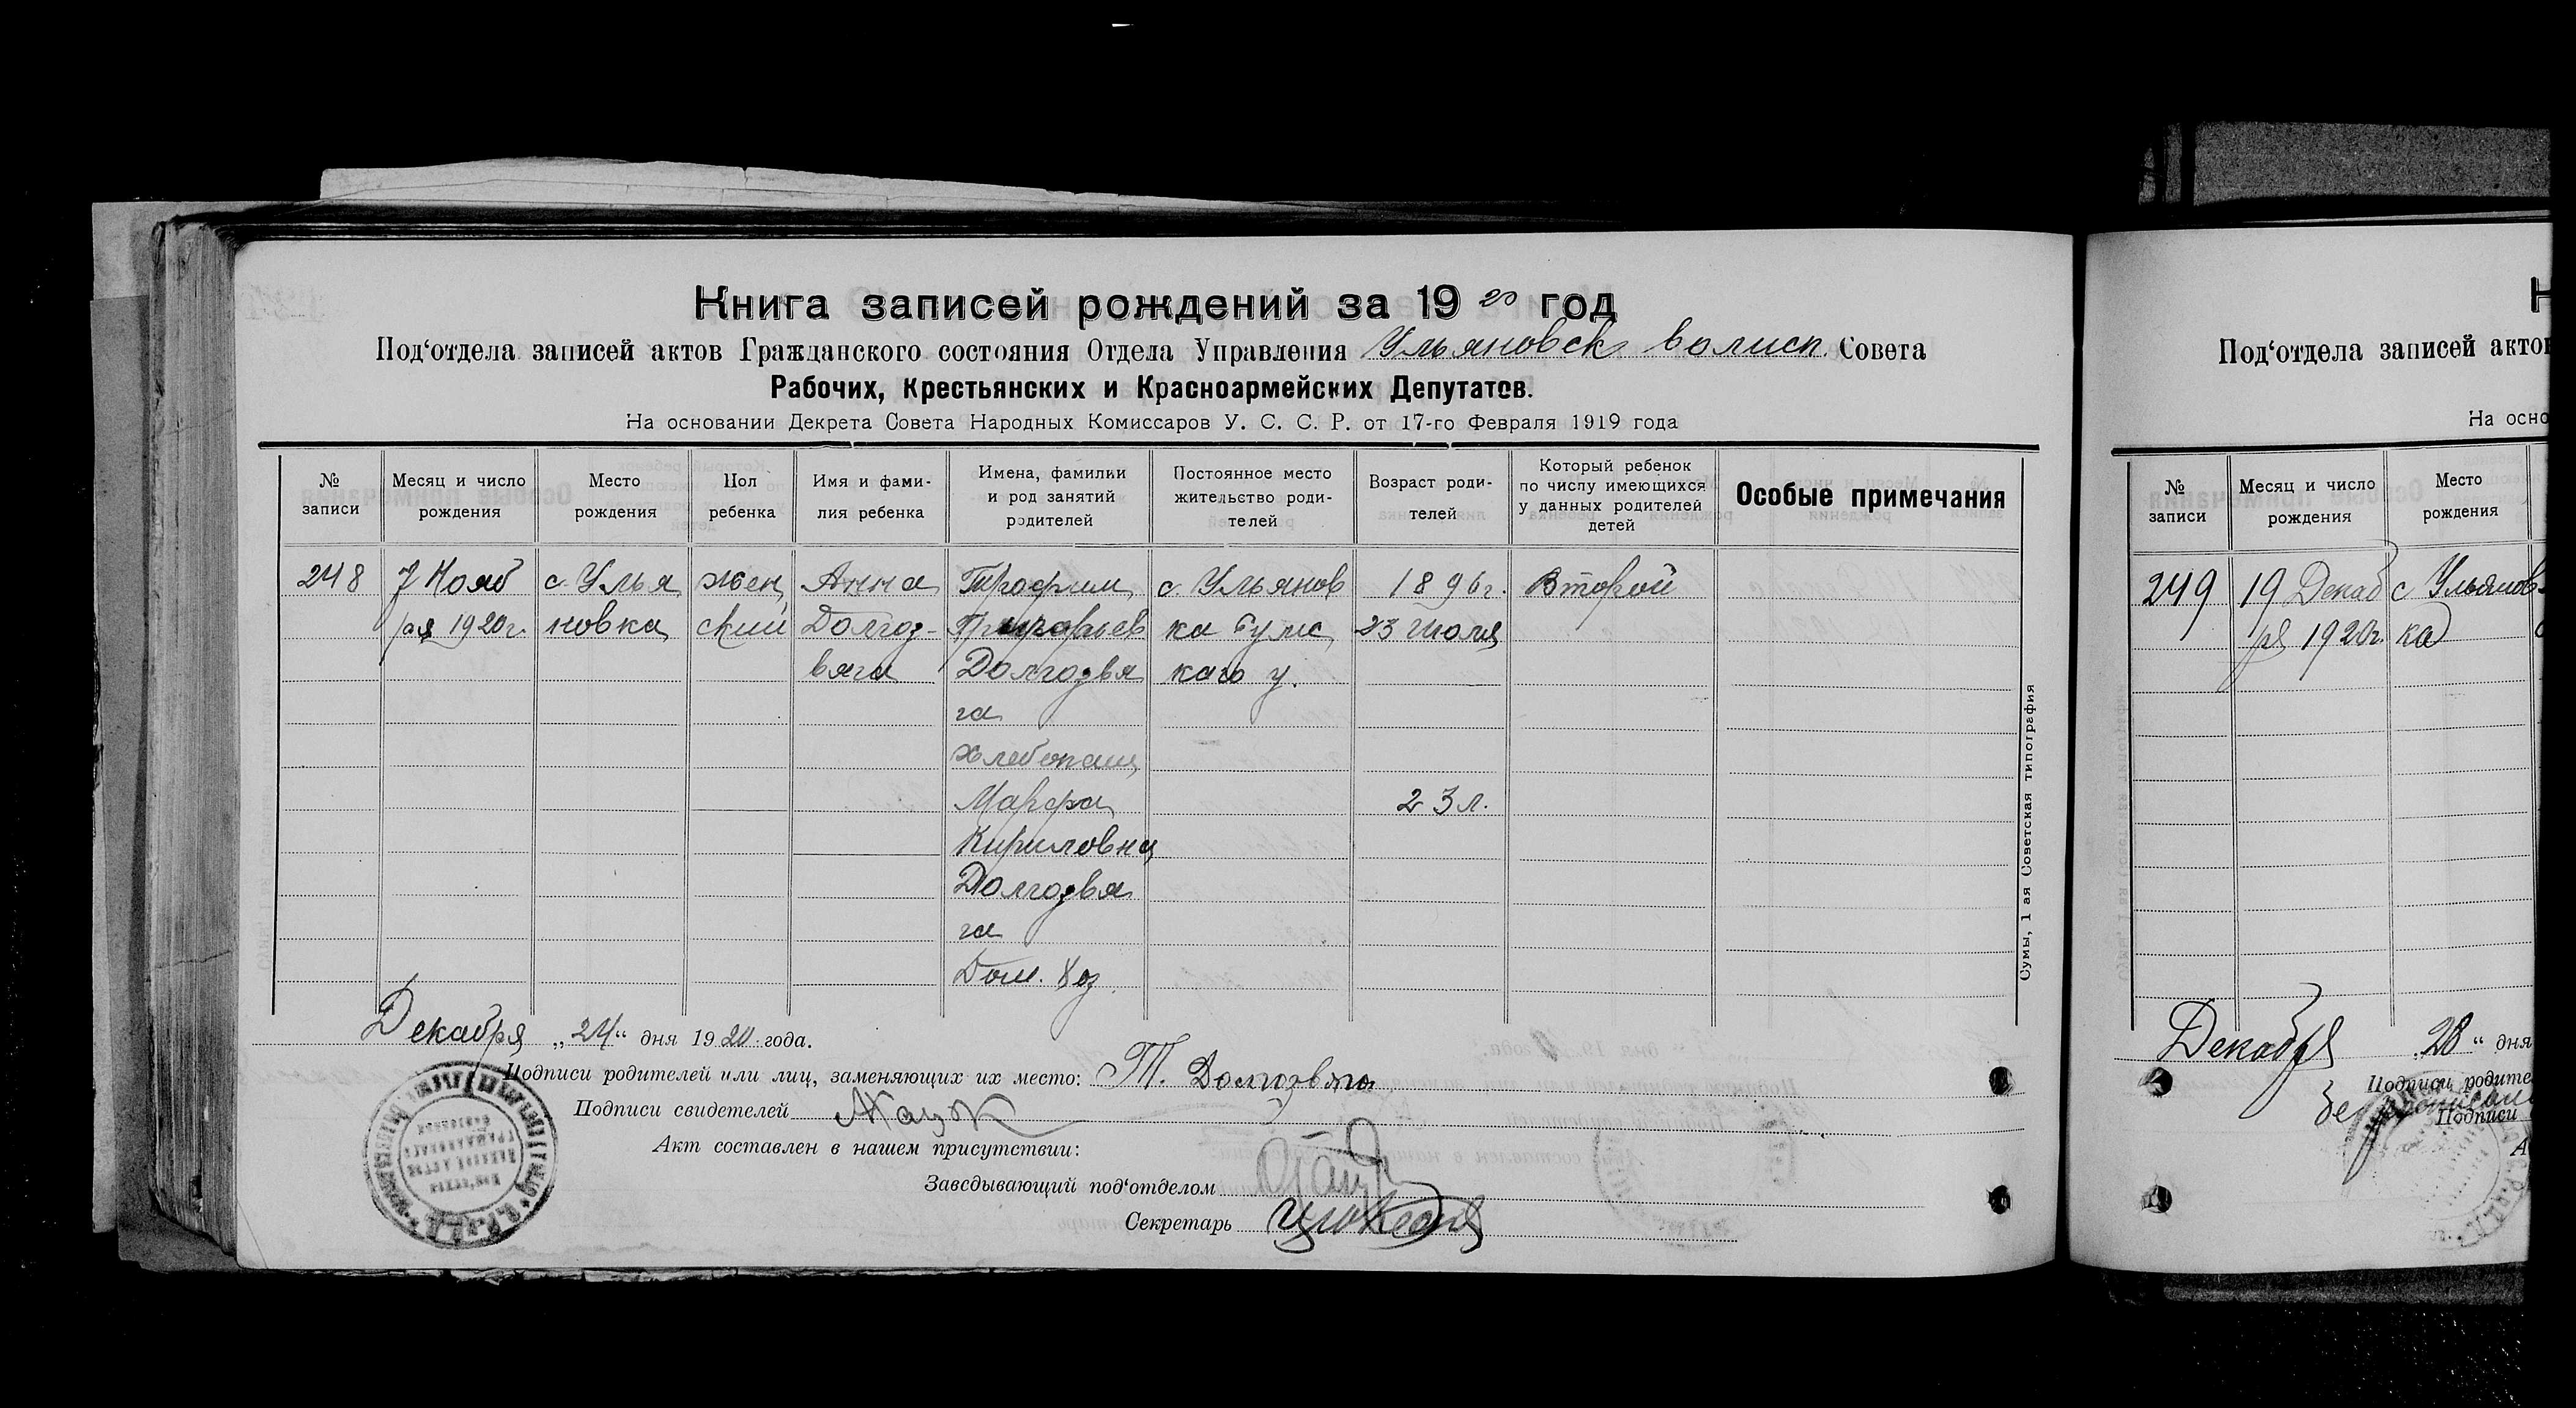 Книга записей рождений за 1920 год
Под'отдела записей актов Гражданского состояния Отдела Управления Ульяновск волисп. Совета
Рабочих, Крестьянских и Красноармейских Депутатов.
На основании Декрета Совета Народных Комиссаров У. С. С. Р. от 17-го Февраля 1919 года
№ записи
Месяц и число рождения
Место рождения
Пол ребенка
Имя и фами-
лия ребенка
Имена, фамилии
и род занятий
родителей
Постоянное место
жительство роди-
телей
Возраст роди-
телей
Который ребенок
по числу имеющихся
у данных родителей
детей
Особые примечания
248
7 Нояб
ря 1920 г.
с. Улья
новка
жен
ский
Анна
Долгоз-
вяга
Трофим
Долгозвя
га
Хлебопаш
Марфа
Кириловна
Долгозвя
га
Дом. хоз.
с. Ульянов
ка Сумс
каго у.
1896 г.
23 Июля
23 л.
Второй
Декабря „24“ дня 1920 года.
Подписи родителей или лиц, заменяющих их место: Т. Долгозвяга
Подписи свидетелей
Акт составлен в нашем присутствии:
Заведывающий под'отделом
Секретарь
Сумы, 1 ая Советская типография
Под'отдела записей актов
На осно
№ записи
Месяц и число рождения
Место рождения
249
19 Декаб
ря 1920 г.
с Ульянов
ка
Декабря „28“ дня
Подписи родите
Подписи
А